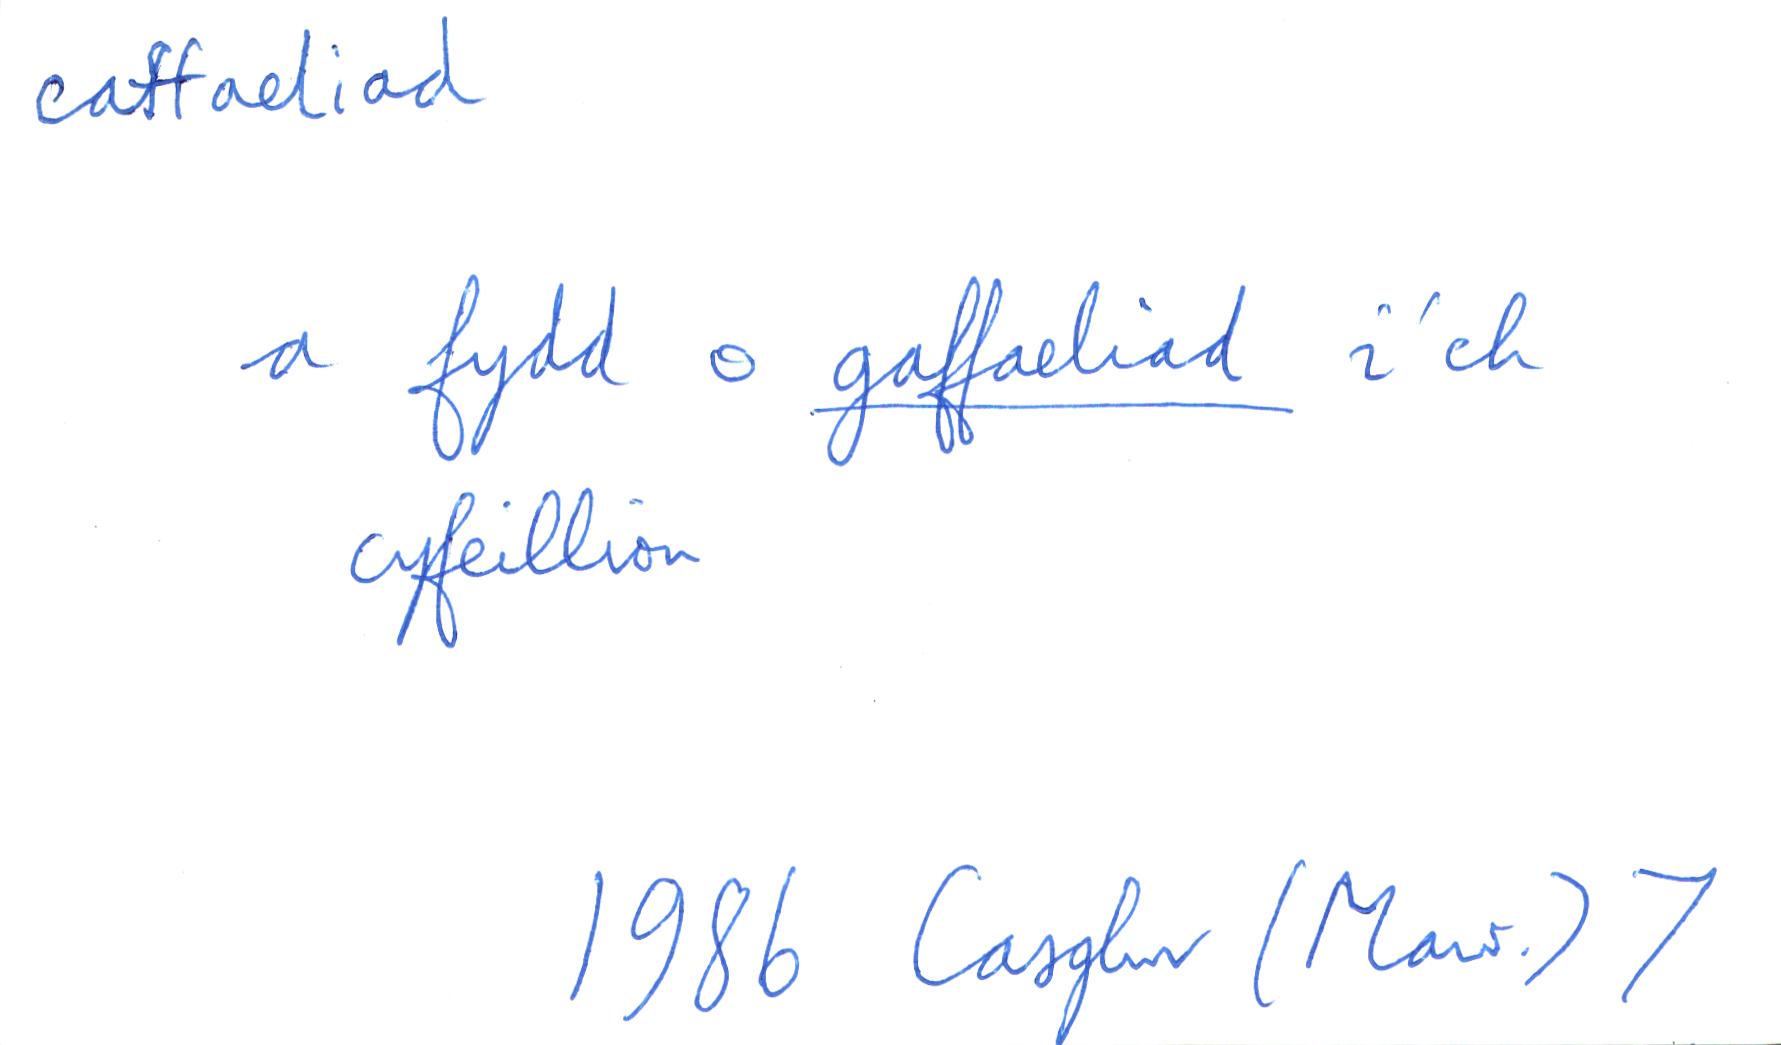 caffaeliad
a fydd o gaffaeliad i'ch
cyfeillion
1986 Casglwr (Maw.) 7